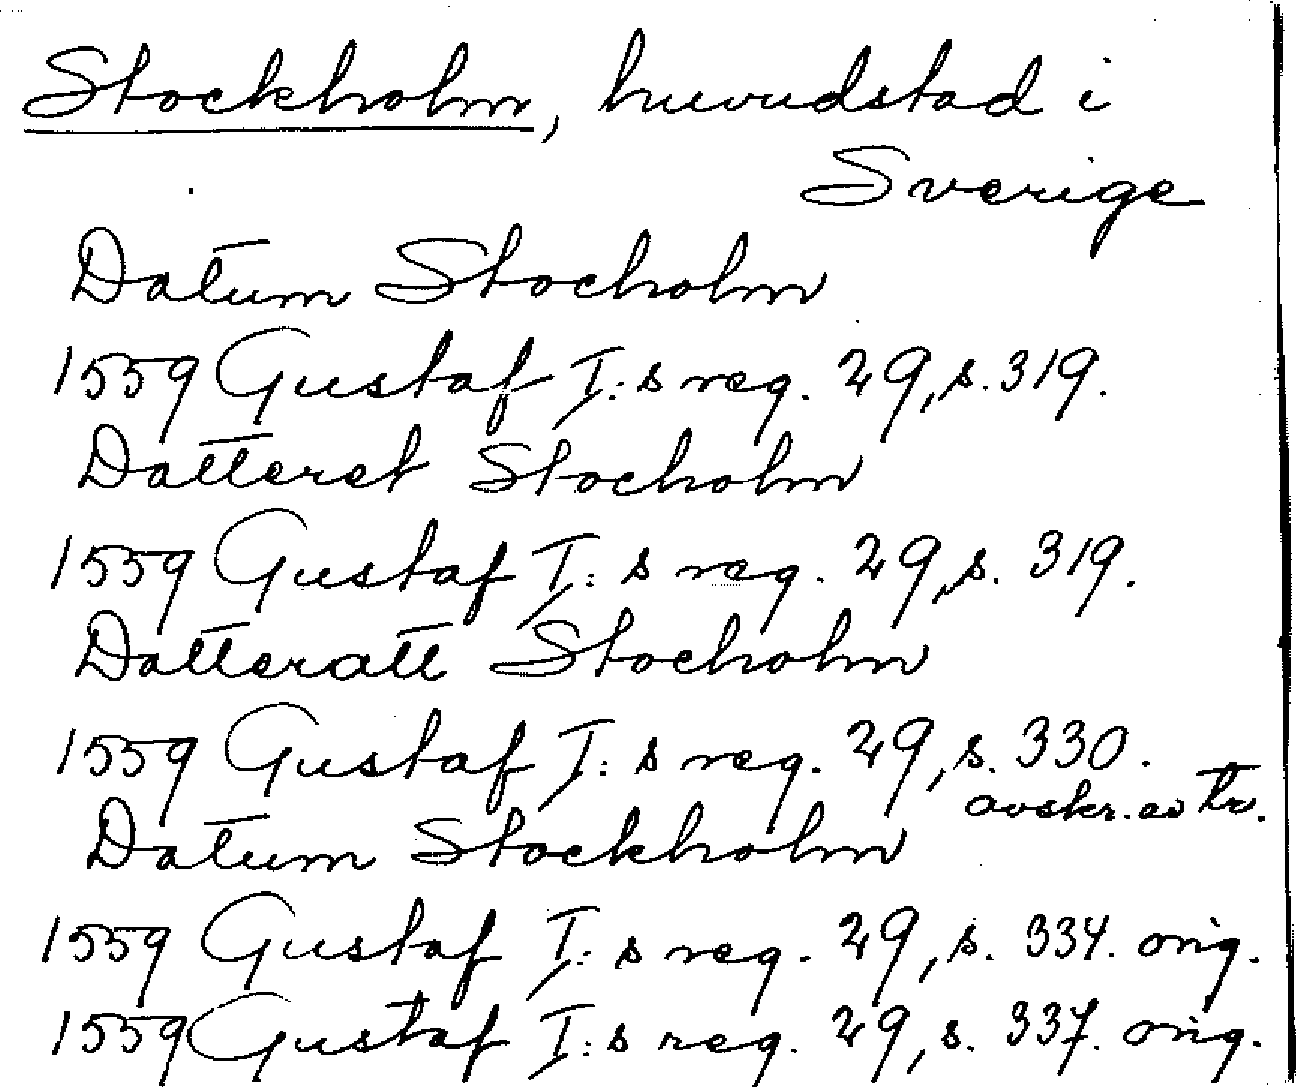 Stockholm, huvudstad i
Sverige
Datum Stocholm
1559 Gustaf I:s reg. 29, s. 319.
Datteret Stocholm
1559 Gustaf I:s reg. 29, s. 319.
Datteratt Stocholm
1559 Gustaf I:s reg. 29, s. 330.
avskr. av tr.
Datum Stockholm
1559 Gustaf I:s reg. 29, s. 334. orig.
1559 Gustaf I:s reg. 29, s. 337. orig.